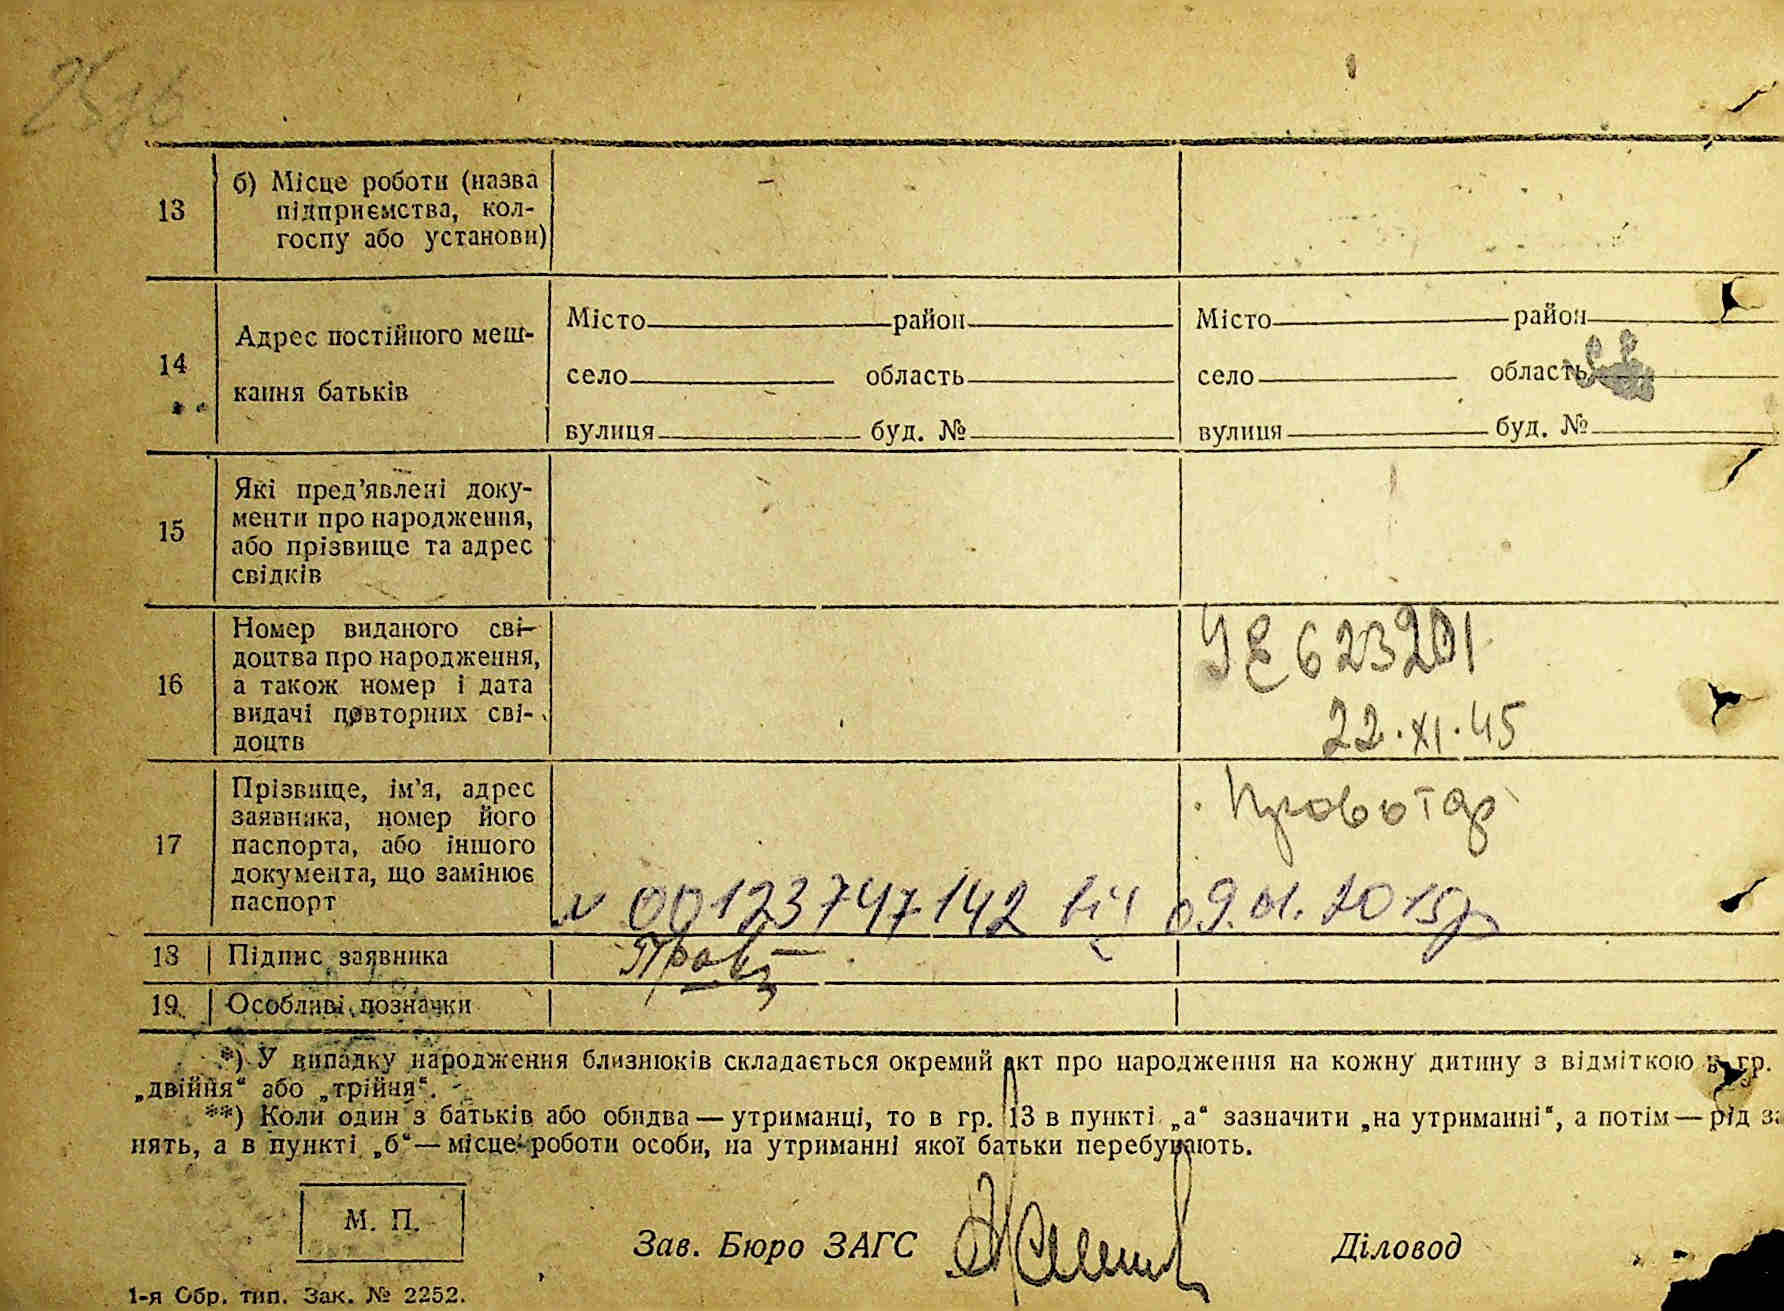 13
б) Місце роботи (назва
підприємства, кол-
госпу або установи)
14
Адрес постійного меш-
кання батьків
Місто район Місто район
село область село область
вулиця буд. № вулиця буд. №
15
Які пред'явлені доку-
менти про народження,
або прізвище та адрес
свідків
16
Номер виданого сві-
доцтва про народження,
а також номер і дата
видачі повторних сві-
доцтв
623201
22.XI.45
17
Прізвище, ім'я, адрес
заявника, номер його
паспорта, або іншого
документа, що замінює
паспорт
Провотар
N 00123747142 09.01.2019р
18 Підпис заявника
19 Особливі позначки
*) У випадку народження близнюків складається окремий акт про народження на кожну дитину з відміткою в гр.
„двійня“ або „трійня“.
**) Коли один з батьків або обидва — утриманці, то в гр. 13 в пункті „а“ зазначити „на утриманні“, а потім — рід за
нять, а в пункті „б“ — місце роботи особи, на утриманні якої батьки перебувають.
М. П.
Зав. Бюро ЗАГС Діловод
1-я Обр. тип. Зак. № 2252.